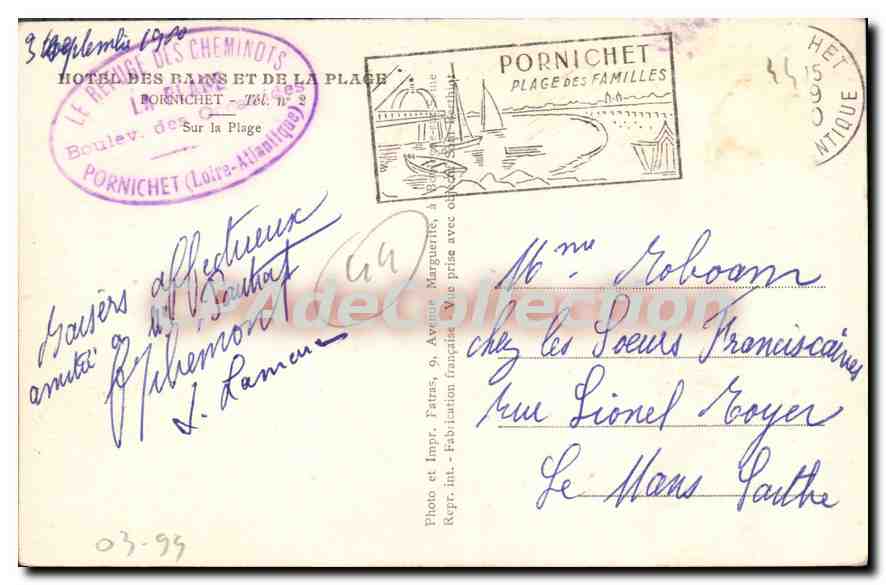 3 Septembre 19
HOTEL DES BAINS ET DE LA PLAGE
PORNICHET - Tél. n° 2
Sur la Plage
LE REFUGE DES CHEMINOTS
Boulev. des
PORNICHET (Loire-Atlantique)
PORNICHET
PLAGE DES FAMILLES
HET
15
9
0
NTIQUE
44
Baisers affectueux
amitié à
Ribemont
L. Lamour
44
Photo et Impr. Fatras, 9, Avenue Marguerite, à
Repr. int. - Fabrication française - Vue prise avec objectif
Mme Roboam
chez les Soeurs Franciscaines
rue Lionel Royer
Le Mans Sarthe
CPADeCollection
03-99